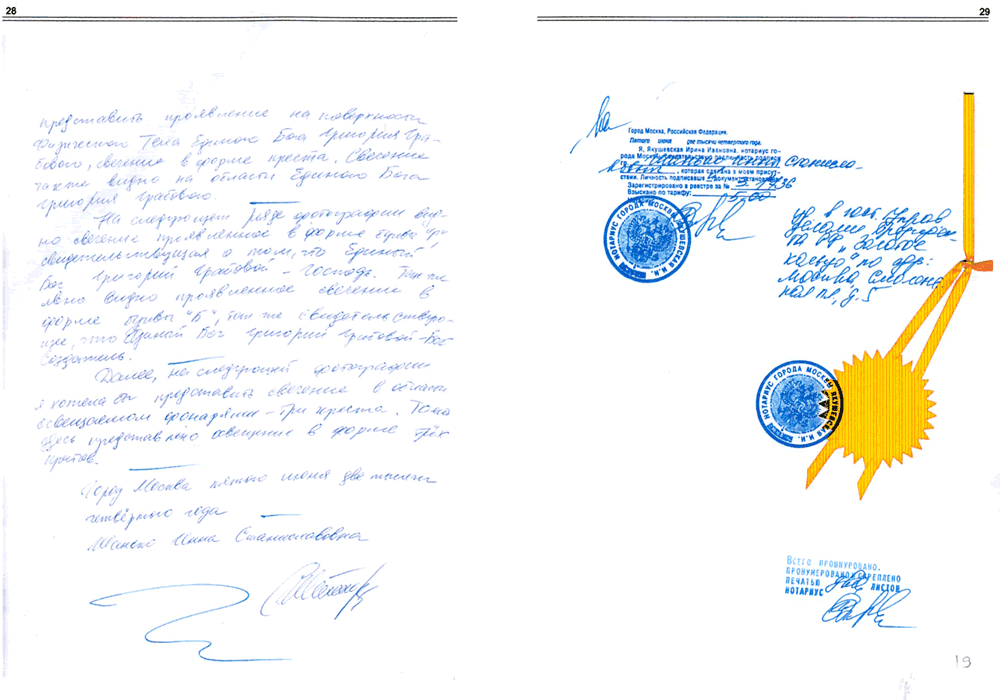 28
представить проявление на поверхности
Физического Тела Единого Бога Григория Гра-
бового, свечение в форме креста. Свечение
также видно на области Единого Бога
Григория Грабового.
На следующем ряде фотографии вид-
но свечение проявленное в форме буквы "Г",
свидетельствующая о том, что Единый
Бог Григорий Грабовой - Господь. Там же
явно видно проявленное свечение в
форме буквы "Б", там же свидетельствую-
щее, что Единый Бог Григорий Грабовой - Бог
Создатель.
Далее, на следующей фотографии
я хотела бы представить свечение в области
освещаемом фонарями - три креста. Тоже
здесь представлено свечение в форме трёх
крестов.
Город Москва пятого июня две тысячи
четвёртого года
Инна Станиславовна
29
Город Москва, Российская Федерация.
Пятого июня две тысячи четвертого года.
Я, Якушевская Ирина Ивановна, нотариус го-
рода Москвы, свидетельствую подлинность подписи
гр. Инны Станисла-
вовны, которая сделана в моем присут-
ствии. Личность подписавшего документ установлена.
Зарегистрировано в реестре за №
Взыскано по тарифу: 5,00
НОТАРИУС ГОРОДА МОСКВЫ ЯКУШЕВСКАЯ И.И.
Москва, Смоленс
кая пл, д. 5
НОТАРИУС ГОРОДА МОСКВЫ ЯКУШЕВСКАЯ И.И.
Всего прошнуровано,
ПРОНУМЕРОВАНО СКРЕПЛЕНО
ПЕЧАТЬЮ два ЛИСТОВ
НОТАРИУС
19